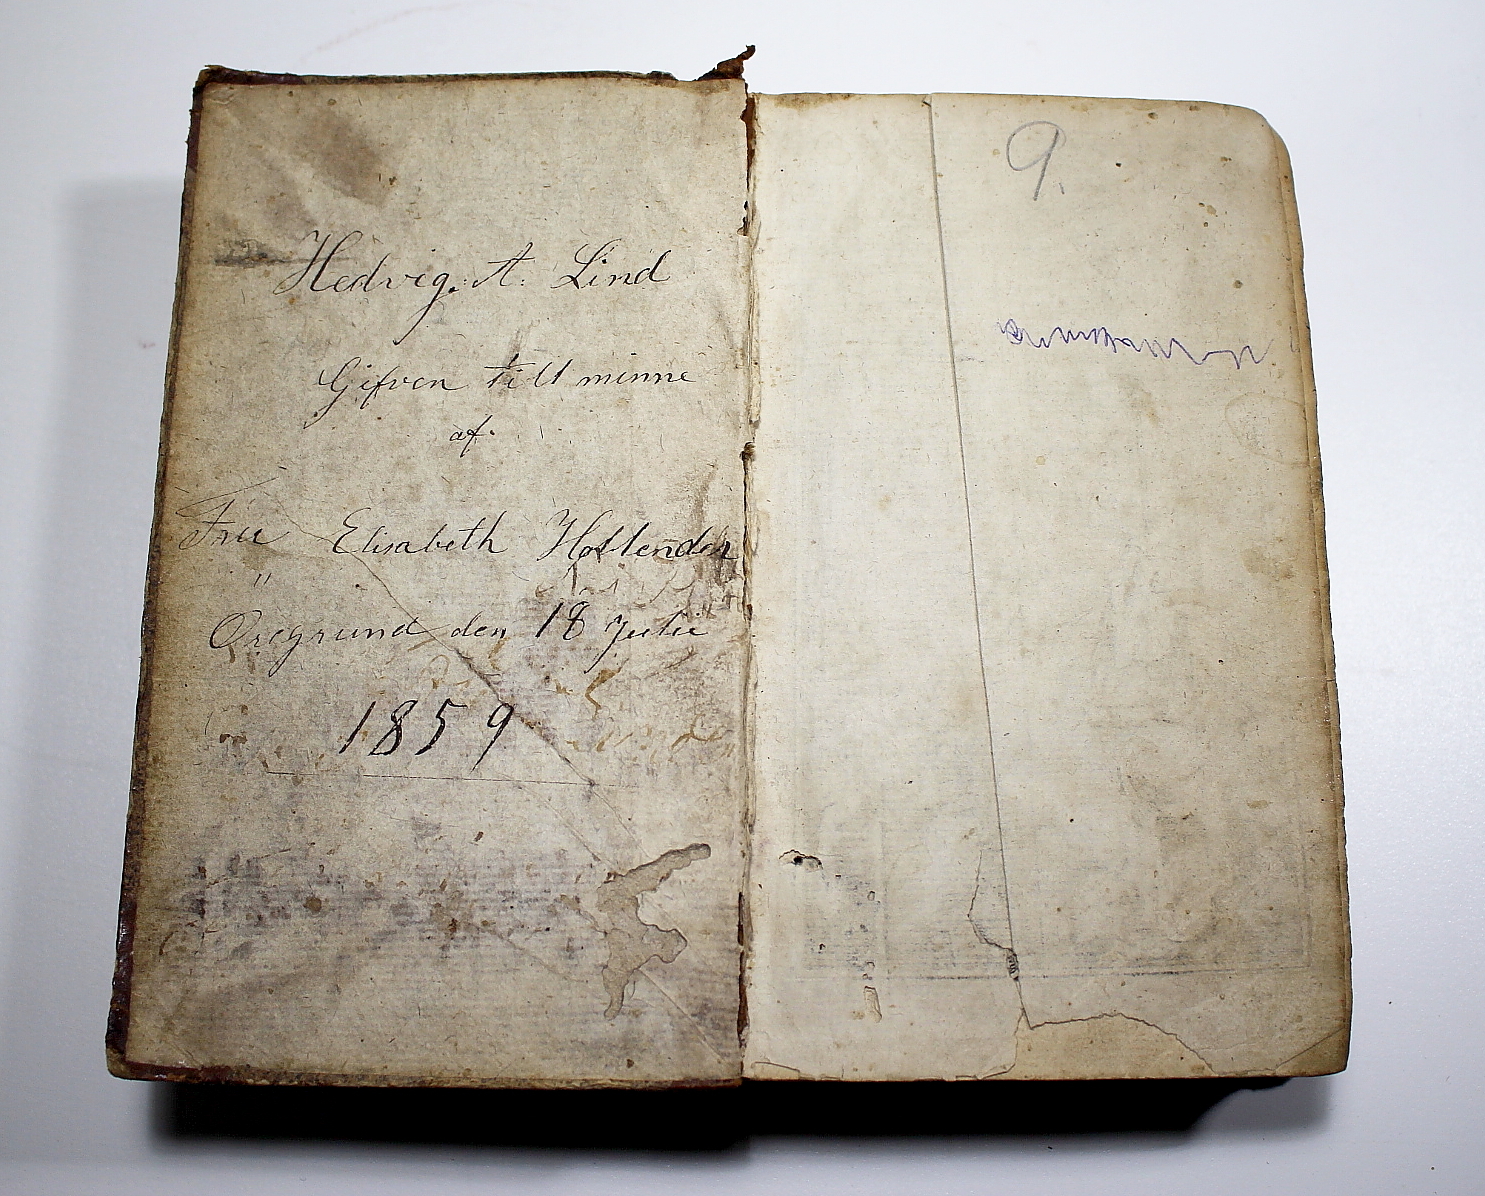 Hedvig. A. Lind
Gifven till minne
af.
Fru Elisabeth Hollender
Öregrund den 18 Julii
1859
9.